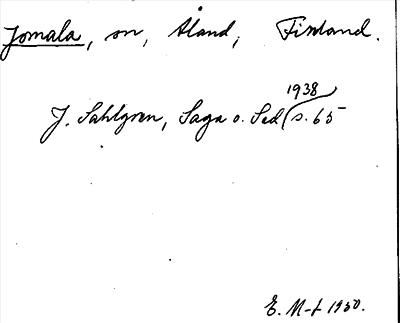 Jomala, sn, Åland, Finland.
J. Sahlgren, Saga o. Sed 1938 s. 65
E. M-f 1950.